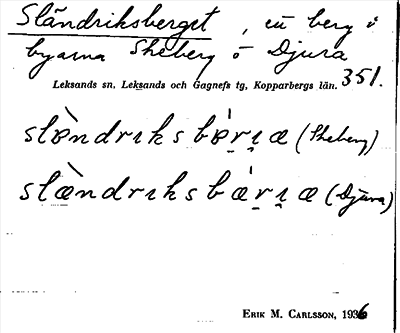 Sländriksberget, ett berg i
byarna Skeberg o Djura
351.
Leksands sn, Leksands och Gagnefs tg, Kopparbergs län.
slɐ̀ndrıksbɐ́r̤ı̤æ (Skeberg)
slæ̀ndrıksbǽr̤ı̤æ (Djura)
ERIK M. CARLSSON, 1936